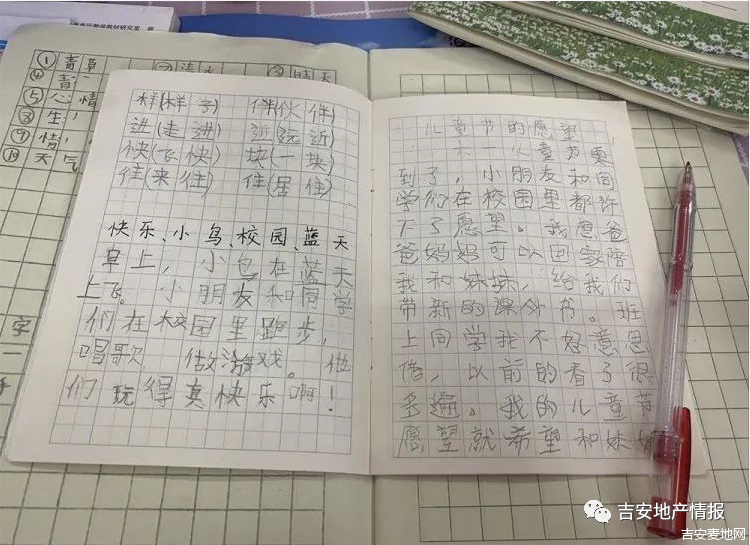 教材研究室 编
① 青草
④ 青
⑤ 心情
③ 生
⑦ 情
⑩ 天气
晴天
样(样子) 伴(伙伴)
进(走进) 近(远近)
快(飞快) 块(一块)
往(来往) 住(居住)
快乐、小鸟、校园、蓝天
早上，小鸟在蓝天
上飞。小朋友和同学
们在校园里跑步，
唱歌 做游戏。他
们玩得真快乐啊！
儿童节的愿望
六一儿童节要
到了，小朋友和同
学们在校园里都许
下了愿望。我想爸
爸妈妈可以回家陪
我和妹妹，给我们
带新的课外书。班
上同学我不好意思
借，以前的看了很
多遍。我的儿童节
愿望就希望和妹妹
字
一
吉安地产情报
吉安麦地网